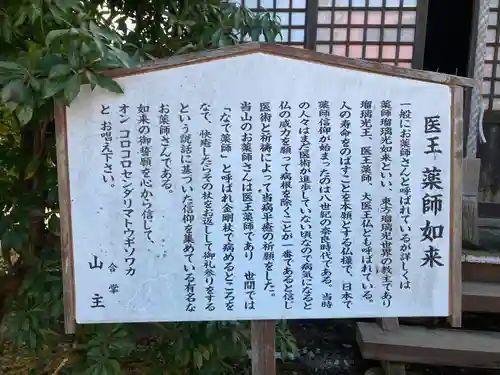 医王 薬師如来
一般に「お薬師さん」と呼ばれているが詳しくは
薬師瑠璃光如来といい、東方瑠璃光世界の教主であり
瑠璃光王、医王薬師、大医王仏とも呼ばれている。
人の寿命をのばすことを本願とする仏様で、日本で
薬師信仰が始まったのは八世紀の奈良時代である。当時
の人々はまだ医術が進歩していない頃なので病気になると
仏の威力を願って病根を除くことが一番であると信じ
医術と祈祷によって当病平癒の祈願をした。
当山のお薬師さんは医王薬師であり 世間では
「なで薬師」と呼ばれ金剛杖で病めるところを
なで、快癒したらその杖をお返しして御礼参りをする
という言い伝えに基づいた信仰を集めている有名な
お薬師さんである。
如来の御誓願を心から信じて、
オン コロコロセンダリマトウギソワカ
とお唱え下さい。
合掌
山主